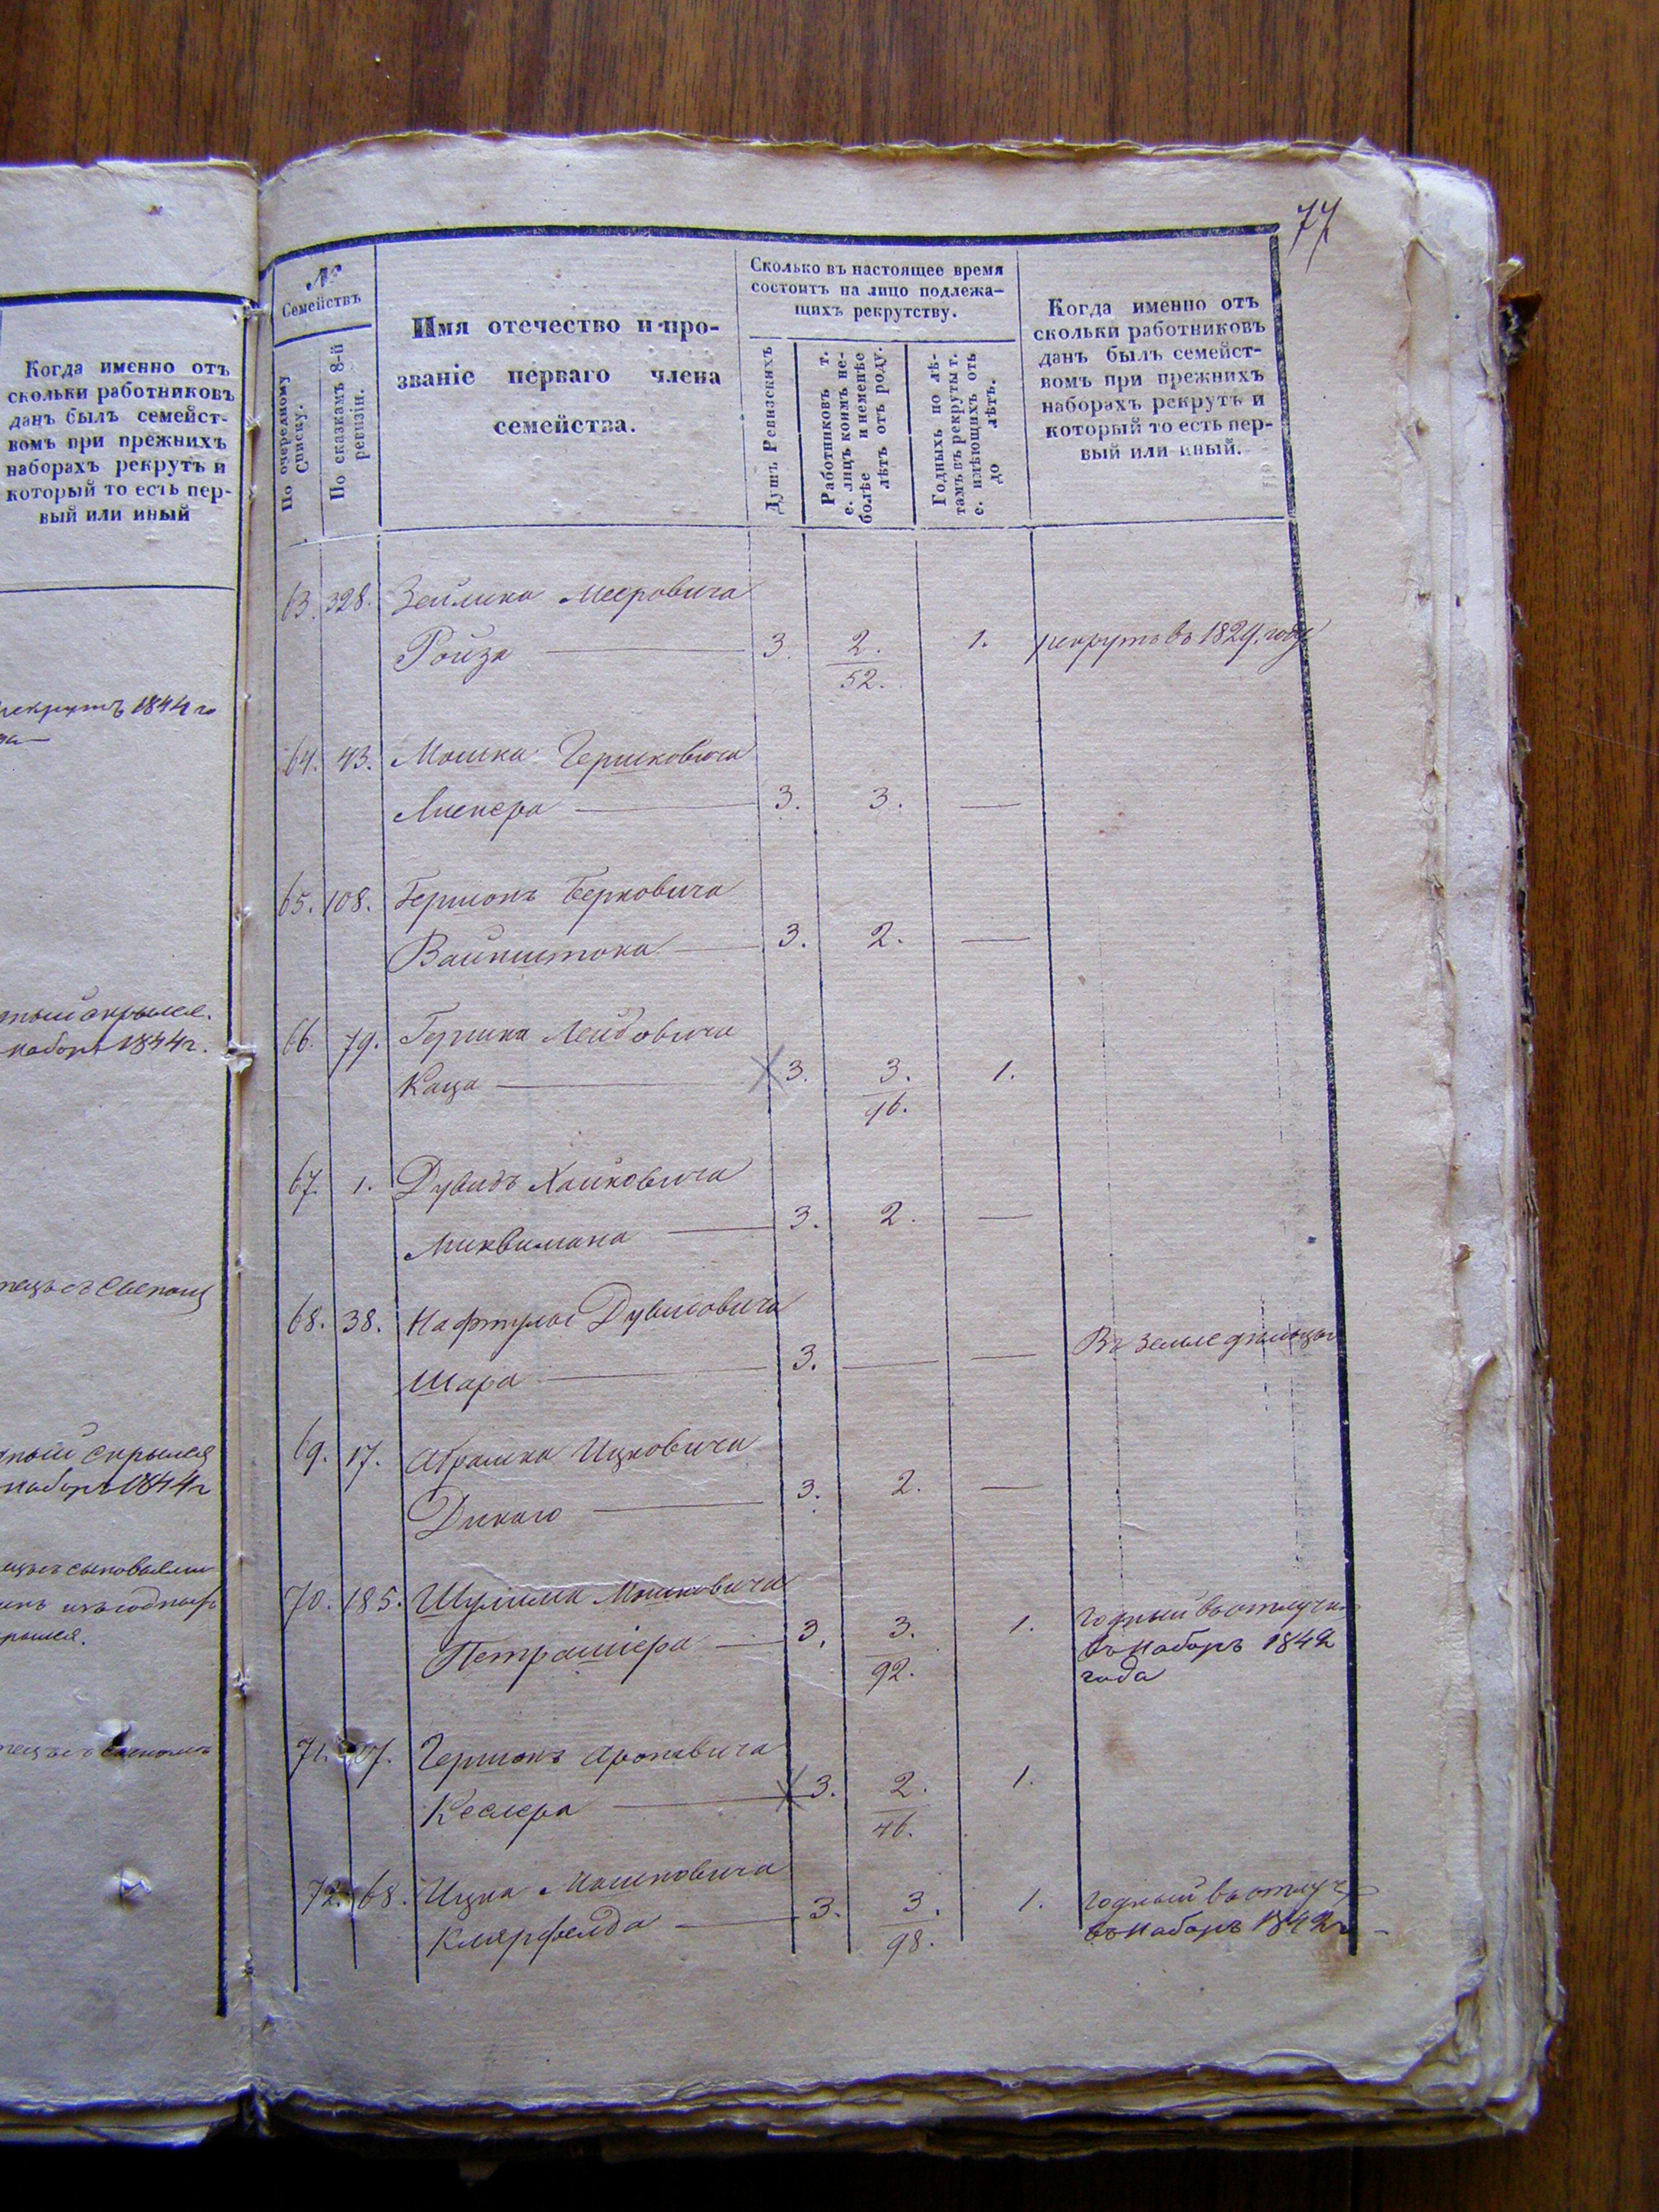 Когда именно отъ
скольки работниковъ
данъ былъ семейст-
вомъ при прежнихъ
наборахъ рекрутъ и
который то есть пер-
вый или иный
рекрутъ 1844 го
скрылся.
наборъ 1844 г.
скрылся
наборъ 1844 г
77
№
Семействъ
По очередному
Списку.
По сказкамъ 8-й
ревизіи.
Имя отечество и про-
званіе перваго члена
семейства.
Сколько въ настоящее время
состоитъ на лицо подлежа-
щихъ рекрутству.
Душъ Ревизскихъ
Работниковъ т.
е. лицъ коимъ не-
болѣе и неменѣе
лѣтъ отъ роду.
Годныхъ по лѣ-
тамъ въ рекруты т.
е. имѣющихъ отъ
до лѣтъ.
Когда именно отъ
скольки работниковъ
данъ былъ семейст-
вомъ при прежнихъ
наборахъ рекрутъ и
который то есть пер-
вый или иный.
63. 328. Зейлика Мееровича
Ройза 3. 2. 1. рекрутъ въ 1829. году
52.
64. 43. Мошка Гершковича
3. 3. —
65. 108. Гершонъ Берковича
Вайнштока 3. 2. —
66. 79. Гершка Лейбовича
Каца 3. 3. 1.
96.
67. 1. Дувидъ Хаимовича
3. 2. —
68. 38. Нафтулы Дувидовича
Шара 3. — — Въ земледѣльцы
69. 17. Абрамка Ицковича
Дикаго 3. 2. —
70. 185. Шулима Мошковича
3. 3. 1. годный въ отлучкѣ
92. въ наборъ 1842
года
71. Гершонъ Ароновича
Кеслера 3. 2. 1.
46.
72. 68. Ицка Мошковича
Клярфелда 3. 3. 1. годный въ отлуч
98. въ наборъ 1842 г